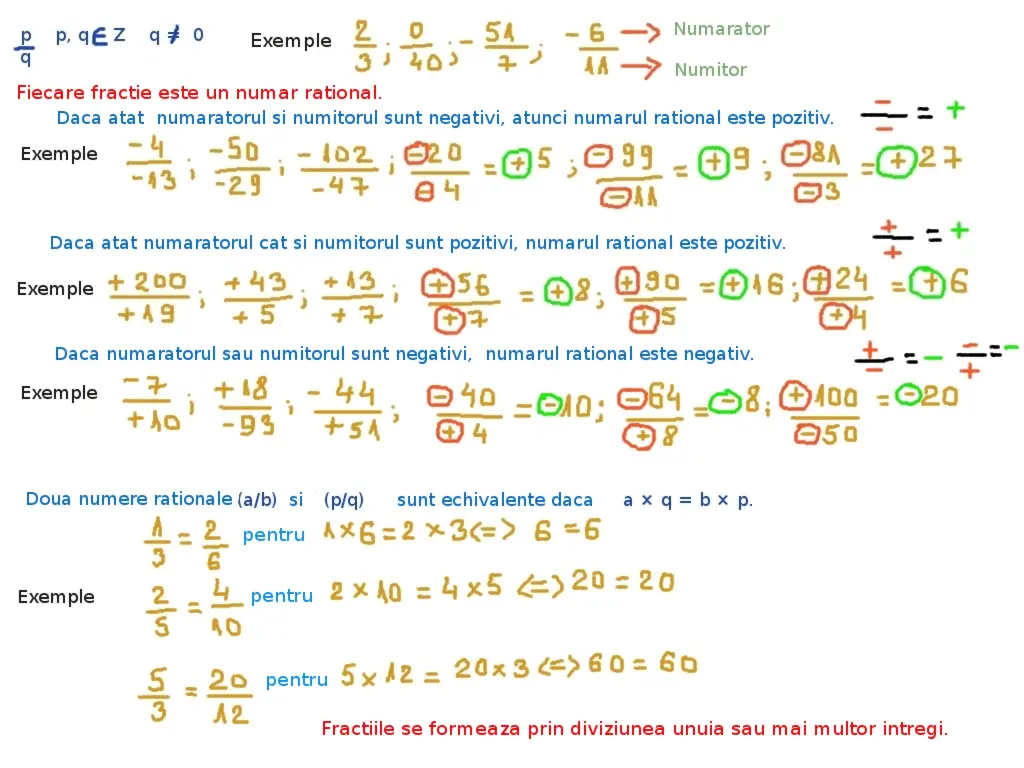 p/q p, q ∈ Z q ≠ 0 Exemple 2/3 ; 0/40 ; - 51/7 ; -6/11 → Numarator → Numitor
Fiecare fractie este un numar rational.
Daca atat numaratorul si numitorul sunt negativi, atunci numarul rational este pozitiv. -/- = +
Exemple -4/-13 ; -50/-29 ; -102/-47 ; -20/-4 = +5 ; -99/-11 = +9 ; -81/-3 = +27
Daca atat numaratorul cat si numitorul sunt pozitivi, numarul rational este pozitiv. +/+ = +
Exemple +200/+19 ; +43/+5 ; +13/+7 ; +56/+7 = +8 ; +90/+5 = +16 ; +24/+4 = +6
Daca numaratorul sau numitorul sunt negativi, numarul rational este negativ. +/- = - -/+ = -
Exemple -7/+10 ; +18/-93 ; -44/+51 ; -40/+4 = -10 ; -64/+8 = -8 ; +100/-50 = -20
Doua numere rationale (a/b) si (p/q) sunt echivalente daca a × q = b × p.
1/3 = 2/6 pentru 1×6 = 2×3 <=> 6 = 6
Exemple 2/5 = 4/10 pentru 2×10 = 4×5 <=> 20 = 20
5/3 = 20/12 pentru 5×12 = 20×3 <=> 60 = 60
Fractiile se formeaza prin diviziunea unuia sau mai multor intregi.